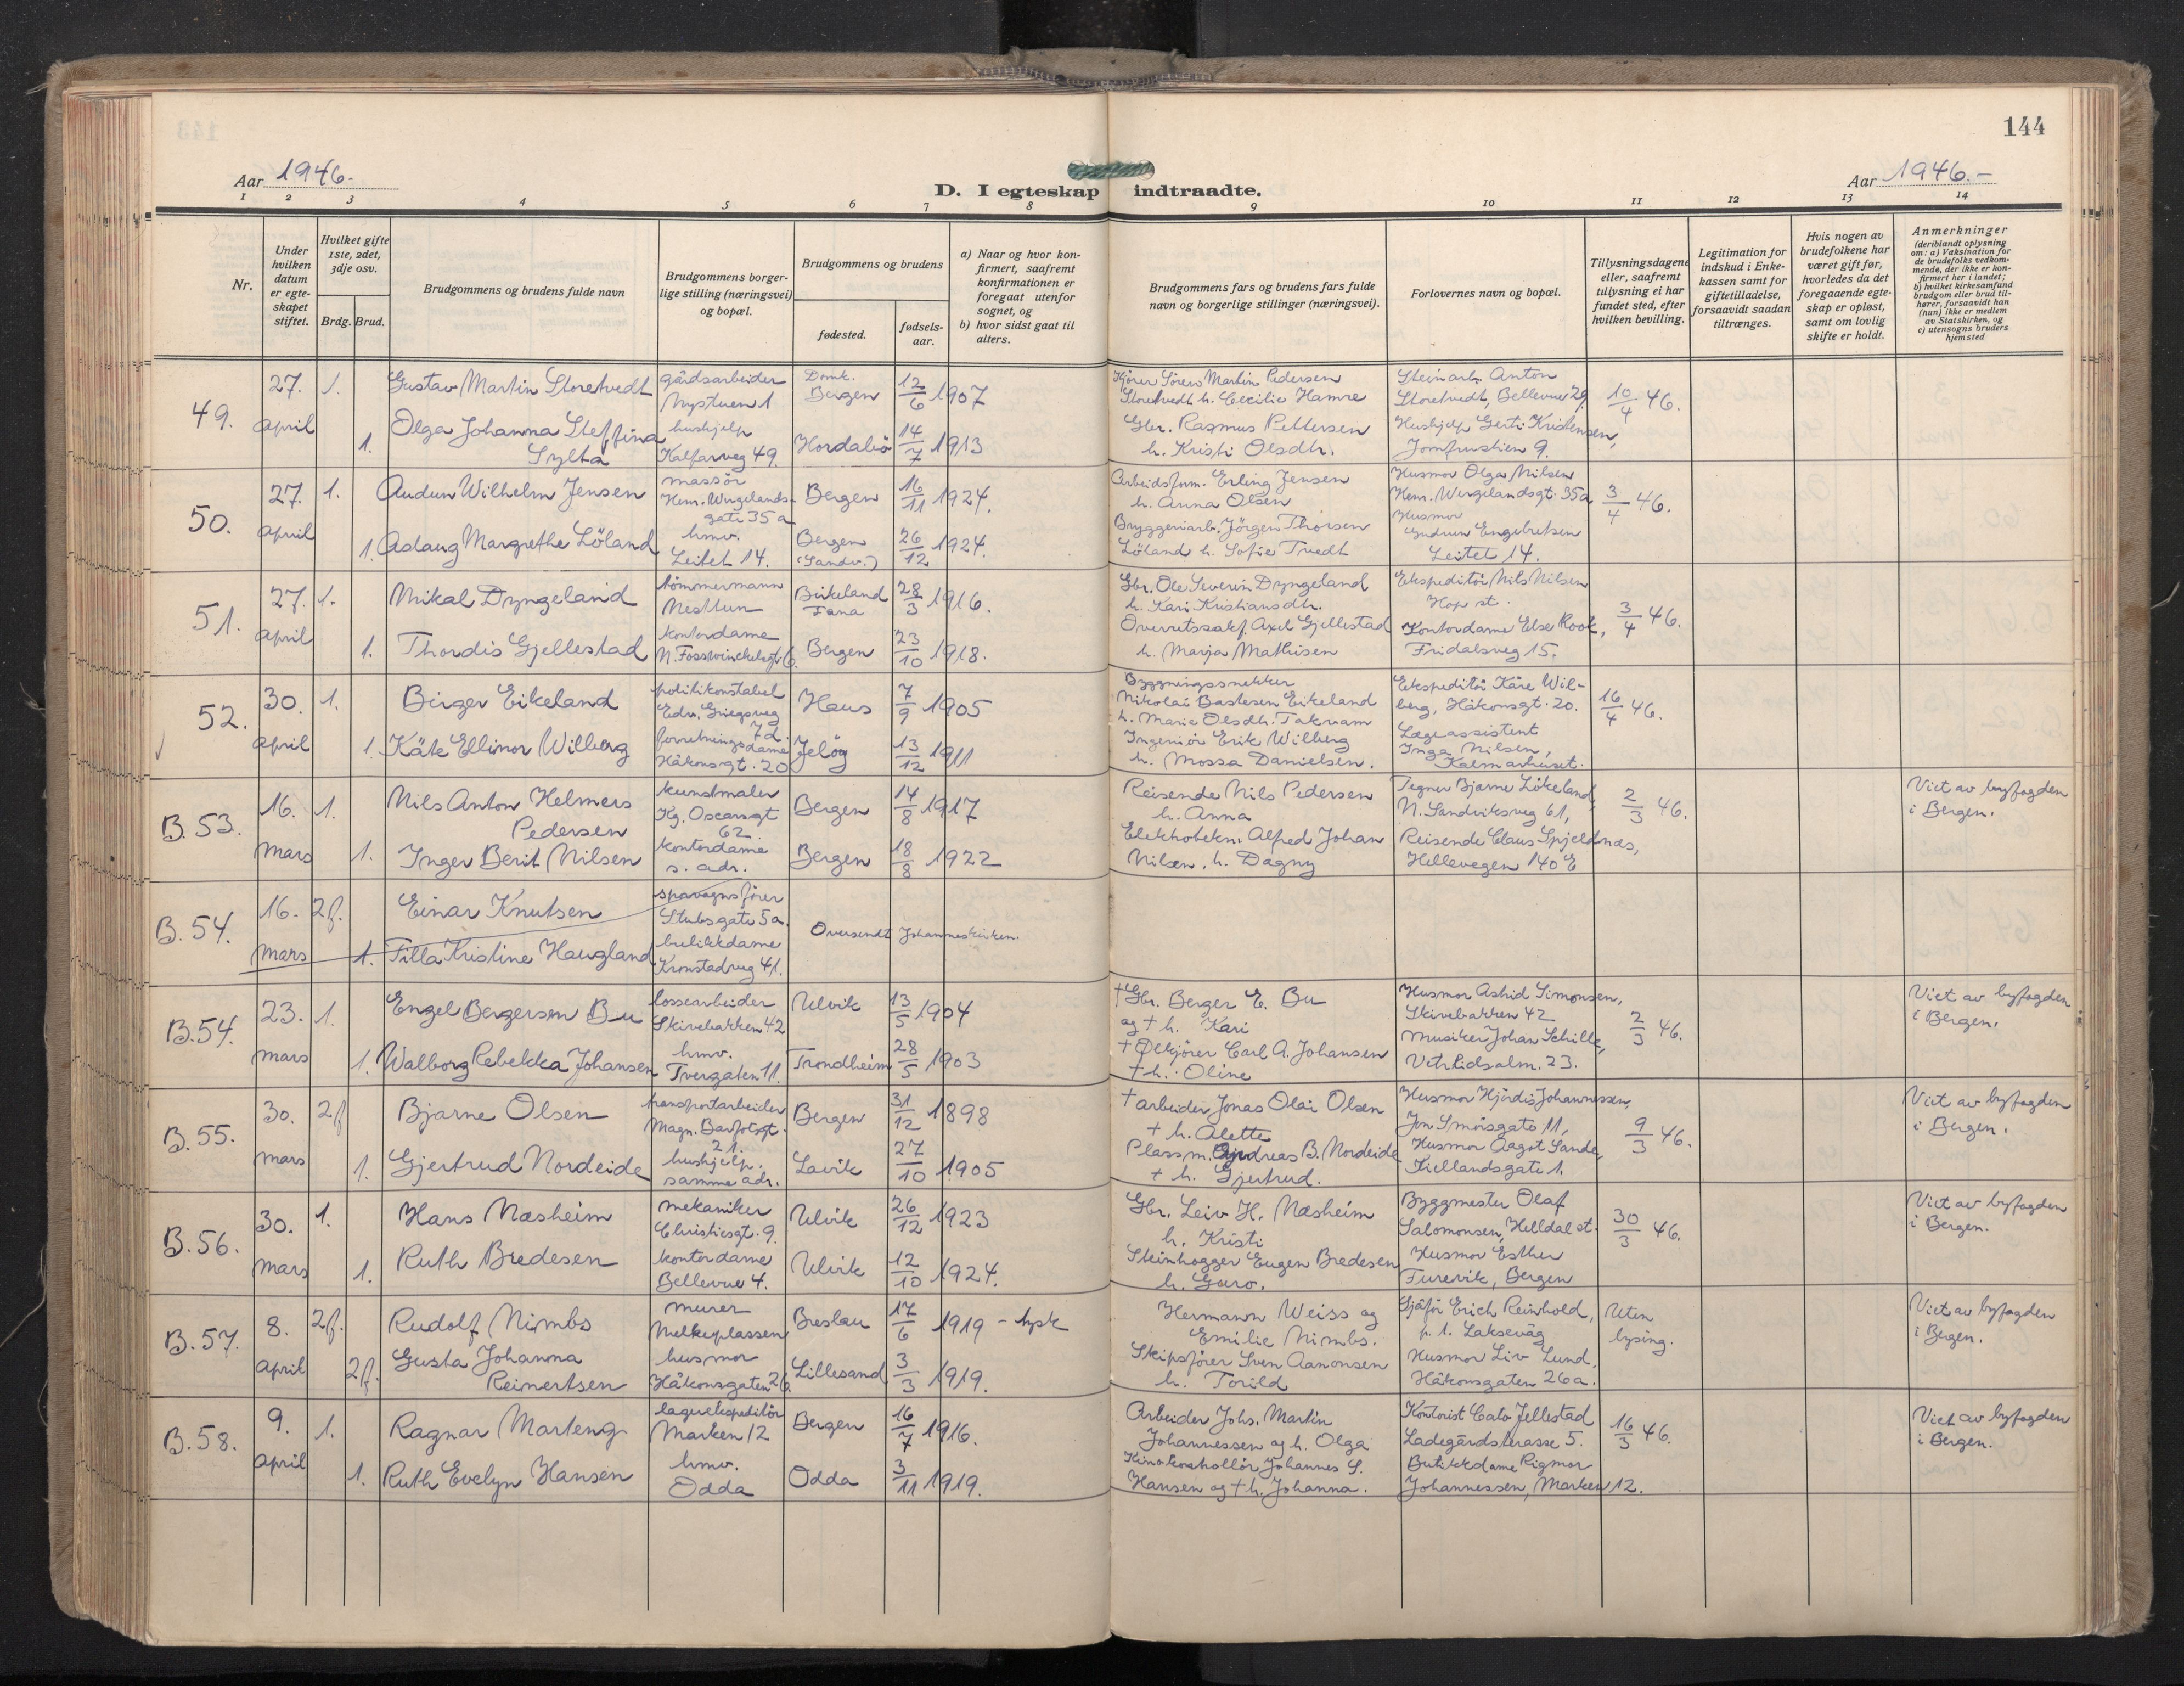 144
Aar 1946.-
D. I egteskap indtraadte.
Aar 1946.-
1 2 3 4 5 6 7 8 9 10 11 12 13 14
Nr.
Under hvilken datum er egteskapet stiftet.
Hvilket gifte 1ste, 2det, 3dje osv.
Brdg. Brud.
Brudgommens og brudens fulde navn
Brudgommens borgerlige stilling (næringsvei) og bopæl.
Brudgommens og brudens
fødested.
fødselsaar.
a) Naar og hvor konfirmert, saafremt konfirmationen er foregaat utenfor sognet, og
b) hvor sidst gaat til alters.
Brudgommens fars og brudens fars fulde navn og borgerlige stillinger (næringsvei).
Forlovernes navn og bopæl.
Tillysningsdagene eller, saafremt tillysning ei har fundet sted, efter hvilken bevilling.
Legitimation for indskud i Enkekassen samt for giftetilladelse, forsaavidt saadan tiltrænges.
Hvis nogen av brudefolkene har været gift før, hvorledes da det foregaaende egteskap er opløst, samt om lovlig skifte er holdt.
Anmerkninger
(deriblandt oplysning om: a) Vaksination for de brudefolks vedkommende, der ikke er konfirmert her i landet; b) hvilket kirkesamfund brudgom eller brud tilhører, forsaavidt han (hun) ikke er medlem av Statskirken, og c) utensogns bruders hjemsted
49.
27. april
1.
Gustav Martin Storetvedt
gårdsarbeider
Nystuen 1
Domk.
Bergen
12/6 1907
Kjører Sören Martin Pedersen
Storetvedt h. Cecilie Hamre
Steinarb. Anton
Storetvedt, Bellevue 29.
10/4 46.
1.
Olga Johanna Steffina
Sylta
hushjelp
Kalfarveg 49.
Hordabö
14/7 1913
Gbr. Rasmus Pettersen
h. Kristi Olsdtr.
Hushjelp Gerti Kristensen,
Jomfrustien 9.
50.
27. april
1.
Audun Wilhelm Jensen
massör
Henr. Wergelands-
gate 35a
Bergen
16/11 1924.
Arbeidsform. Erling Jensen
h. Anna Olsen
Husmor Olga Nilsen
Henr. Wergelandsgt. 35a
3/4 46.
1.
Aslaug Margrethe Löland
hmv.
Leitet 14.
Bergen
(Sandv.)
26/12 1924.
Bryggeriarb. Jörgen Thorsen
Löland h. Sofie Tvedt
Husmor
Gudrun Engebretsen
Leitet 14.
51.
27. april
1.
Mikal Dyngeland
tömmermann
Nesttun
Birkeland
Fana
28/3 1916.
Gbr. Ole Severin Dyngeland
h. Kari Kristiansdtr.
Ekspeditör Nils Nilsen
Hop st.
3/4 46.
1.
Thordis Gjellestad
kontordame
N. Fosswinckelsgt. 6.
Bergen
23/10 1918.
Overretssakf. Axel Gjellestad
h. Marja Mathisen
Kontordame Else Rook,
Fridalsveg 15.
52.
30. april
1.
Birger Eikeland
politikonstabel
Edv. Griegsveg
7d.
Haus
7/9 1905
Byggningssnekker
Nikolai Bastesen Eikeland
h. Marie Olsdtr. Takvam
Ekspeditör Kåre Wil-
berg, Håkonsgt. 20.
16/4 46.
1.
Käte Ellinor Wilberg
forretningsdame
Håkonsgt. 20
Jelöy
13/12 1911
Ingeniör Erik Wilberg
h. Mossa Danielsen.
Lægeassistent
Inga Nilsen,
Kalmarhuset.
B. 53.
16. mars
1.
Nils Anton Helmers
Pedersen
kunstmaler
Kg. Oscarsgt
62.
Bergen
14/8 1917
Reisende Nils Pedersen
h. Anna
Tegner Bjarne Lökeland,
N. Sandviksveg 61,
2/3 46.
Viet av byfogden
i Bergen.
1.
Inger Berit Nilsen
kontordame
s. adr.
Bergen
18/8 1922
Elektrotekn. Alfred Johan
Nilsen. h. Dagny
Reisende Claus Spjeldnæs,
Hellevegen 140 E
B. 54.
16. mars
2f.
Einar Knutsen
sporvognsfører
Stubsgate 5a.
Oversendt Johanneskirken.
1.
Tilla Kristine Haugland
butikkdame
Kronstadveg 41.
B.54.
23. mars
1.
Engel Bergersen Bu
lossearbeider
Skivebakken 42
Ulvik
13/5 1904
† Gbr. Berger E. Bu
og † h. Kari
Husmor Astrid Simonsen,
Skivebakken 42
2/3 46.
Viet av byfogden
i Bergen.
1.
Walborg Rebekka Johansen
hmv.
Tvergaten 11.
Trondheim
28/5 1903
† Ölkjörer Carl A. Johansen
† h. Oline
Musiker Johan Schille,
Vetrlidsalm. 23.
B. 55.
30. mars
2f
Bjarne Olsen
transportarbeider
Magn. Barfotsgt.
21.
Bergen
31/12 1898
† arbeider Jonas Olai Olsen
† h. Alette
Husmor Hjördis Johannessen,
Jon Smörsgate 11,
9/3 46.
Viet av byfogden
i Bergen.
1.
Gjertrud Nordeide
hushjelp.
samme adr.
Lavik
27/10 1905
Plassm. Andreas B. Nordeide
† h. Gjertrud.
Husmor Aagot Sande,
Kiellandsgate 1.
B. 56.
30. mars
1.
Hans Næsheim
mekaniker
Christiesgt. 9.
Ulvik
26/12 1923
Gbr. Leiv H. Næsheim
h. Kristi
Byggmester Olaf
Salomonsen, Helldal st.
30/3 46.
Viet av byfogden
i Bergen.
1.
Ruth Bredesen
kontordame
Bellevue 4.
Ulvik
12/10 1924.
Steinhogger Eugen Bredesen
h. Garo.
Husmor Esther
Turevik, Bergen
B. 57.
8. april
2f.
Rudolf Nimbs
murer
Melkeplassen
Breslau
17/6 1919 - tysk
Hermann Weiss og
Emilie Nimbs.
Sjåför Erich Reinhold,
p. t. Laksevåg
Uten
lysing.
Viet av byfogden
i Bergen.
2f.
Gusta Johanna
Reinertsen
husmor
Håkonsgaten 26.
Lillesand
3/3 1919.
Skipsfører Sven Aanonsen
h. Torild
Husmor Liv Lund,
Håkonsgaten 26a.
B. 58.
9. april
1.
Ragnar Marteng
lagerekspeditör
Marken 12
Bergen
16/7 1916.
Arbeider Johs. Martin
Johannessen og h. Olga
Kontorist Cato Jellestad
Ladegårdsterasse 5.
16/3 46.
Viet av byfogden
i Bergen.
1.
Ruth Evelyn Hansen
hmv.
Odda
Odda
3/11 1919.
Kinokontrollör Johannes S.
Hansen og † h. Johanna.
Butikkdame Rigmor
Johannessen, Marken 12.